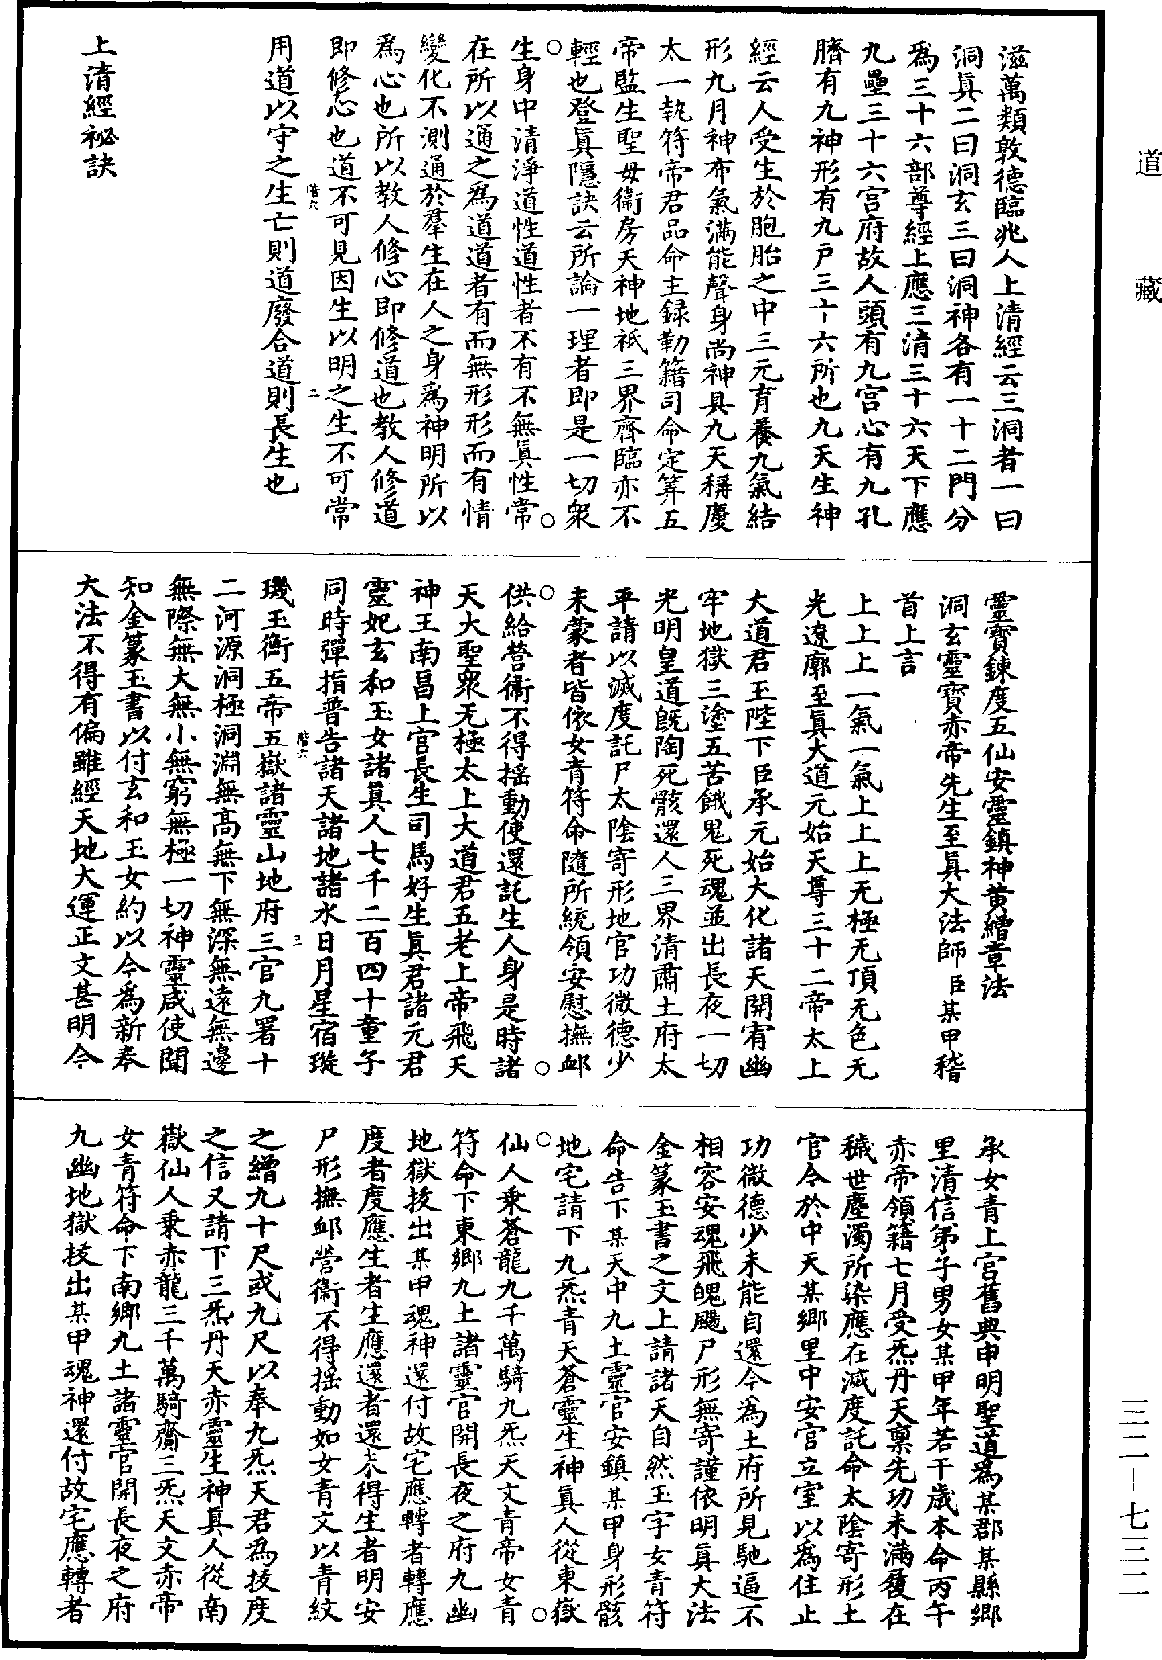 道藏
滋萬類敦德臨兆人上清經云三洞者一曰
洞真二曰洞玄三曰洞神各有一十二門分
爲三十六部尊經上應三清三十六天下應
九壘三十六宮府故人頭有九宮心有九孔
臍有九神形有九戶三十六所也九天生神
經云人受生於胞胎之中三元育養九氣結
形九月神布氣滿能聲身尚神具九天稱慶
太一執符帝君品命主錄勒籍司命定筭五
帝監生聖母衛房天神地祇三界齊臨亦不
輕也登真隱訣云所論一理者即是一切衆
生身中清淨道性道性者不有不無真性常
在所以通之爲道道者有而無形形而有情
變化不測通於羣生在人之身爲神明所以
爲心也所以教人修心即修道也教人修道
即修心也道不可見因生以明之生不可常
用道以守之生亡則道廢合道則長生也
上清經祕訣
靈寶鍊度五仙安靈鎮神黃繒章法
洞玄靈寶赤帝先生至真大法師臣某甲稽
首上言
上上上一氣一氣上上上无極无頂无色无
光遼廓至真大道元始天尊三十二帝太上
大道君玉陛下臣承元始大化諸天開宥幽
牢地獄三塗五苦餓鬼死魂並出長夜一切
光明皇道旣陶死骸還人三界清肅土府太
平請以滅度託尸太陰寄形地官功微德少
未蒙者皆依女青符命隨所統領安慰撫卹
供給營衛不得搖動使還託生人身是時諸
天大聖衆无極太上大道君五老上帝飛天
神王南昌上宮長生司馬好生真君諸元君
靈妃玄和玉女諸真人七千二百四十童子
同時彈指普告諸天諸地諸水日月星宿璇
璣玉衡五帝五嶽諸靈山地府三官九署十
二河源洞極洞淵無高無下無深無遠無邊
無際無大無小無窮無極一切神靈咸使聞
知金篆玉書以付玄和玉女約以今爲新奉
大法不得有偏雖經天地大運正文甚明今
承女青上宮舊典申明聖道爲某郡某縣鄉
里清信弟子男女某甲年若干歲本命丙午
赤帝領籍七月受炁丹天稟先功未滿履在
穢世塵濁所染應在滅度託命太陰寄形土
官今於中天某鄉里中安宮立室以爲住止
功微德少未能自還今為土府所見馳逼不
相容安魂飛魄颺尸形無寄謹依明真大法
金篆玉書之文上請諸天自然玉字女青符
命告下某天中九土靈官安鎮某甲身形骸
地宅請下九炁青天蒼靈生神真人從東嶽
仙人乘蒼龍九千萬騎九炁天文青帝女青
符命下東鄉九土諸靈官開長夜之府九幽
地獄拔出某甲魂神還付故宅應轉者轉應
度者度應生者生應還者還未得生者明安
尸形撫卹營衛不得搖動如女青文以青紋
之繒九十尺或九尺以奉九炁天君為拔度
之信又請下三炁丹天赤靈生神真人從南
嶽仙人乘赤龍三千萬騎齎三炁天文赤帝
女青符命下南鄉九土諸靈官開長夜之府
九幽地獄拔出某甲魂神還付故宅應轉者
三二—七三二